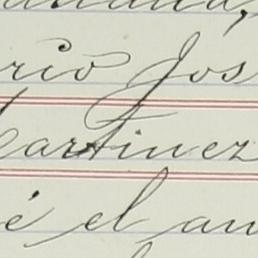 rio Jos
Martinez
é el an